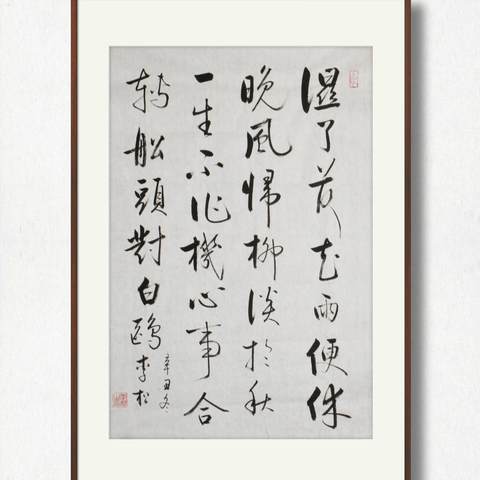 濕了荷花雨便休
晚風歸柳淡於秋
一生不作機心事合
轉船頭對白鷗
辛丑冬
李松